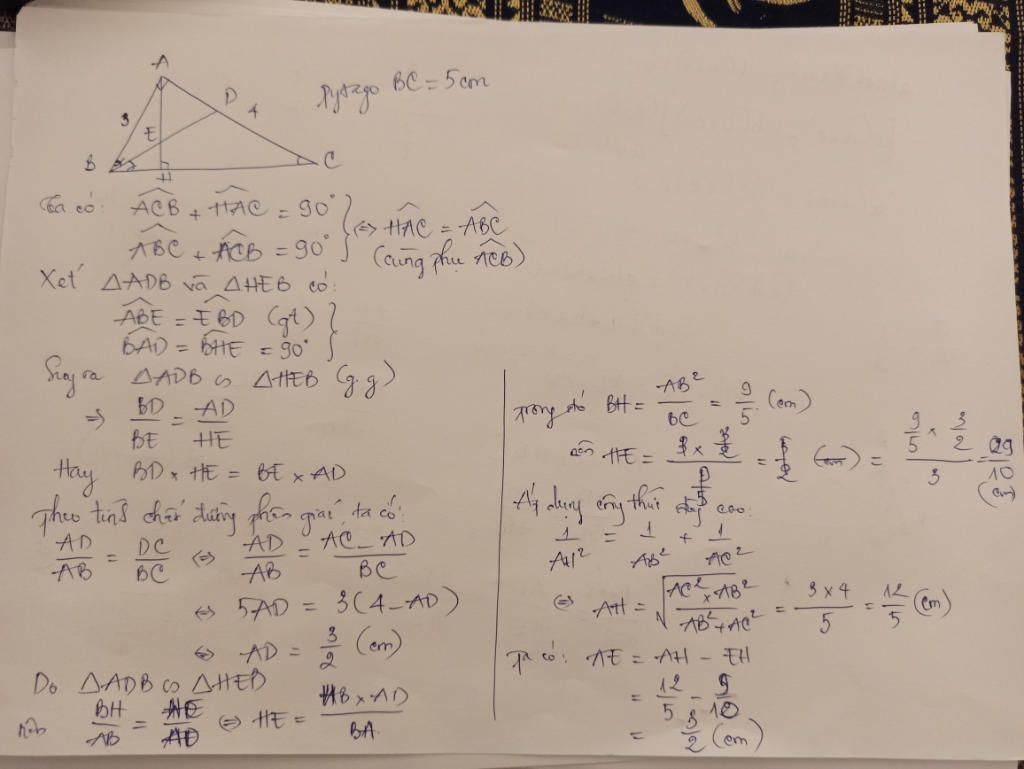 A
D
3
4
E
B
H
C
Pytago BC = 5cm
Ta có: ACB + HAC = 90°
ABC + ACB = 90°
⇔ HAC = ABC
(cùng phụ ACB)
Xét △ADB và △HEB có:
ABE = EBD (gt)
BAD = BHE = 90°
Suy ra △ADB ∽ △HEB (g.g)
⇒ BD/BE = AD/HE
Hay BD × HE = BE × AD
Theo tính chất đường phân giác, ta có:
AD/AB = DC/BC ⇔ AD/AB = (AC - AD)/BC
⇔ 5AD = 3(4 - AD)
⇔ AD = 3/2 (cm)
Do △ADB ∽ △HEB
nên BH/AB = HE/AD ⇔ HE = (HB × AD)/BA
Trong đó BH = AB²/BC = 9/5 (cm)
nên HE = = (9/5 × 3/2)/3 = 9/10 (cm)
Áp dụng công thức đg cao:
1/AH² = 1/AB² + 1/AC²
⇔ AH = √((AC² × AB²)/(AB² + AC²)) = (3 × 4)/5 = 12/5 (cm)
Ta có: AE = AH - EH
= 12/5 - 9/10
= 3/2 (cm)